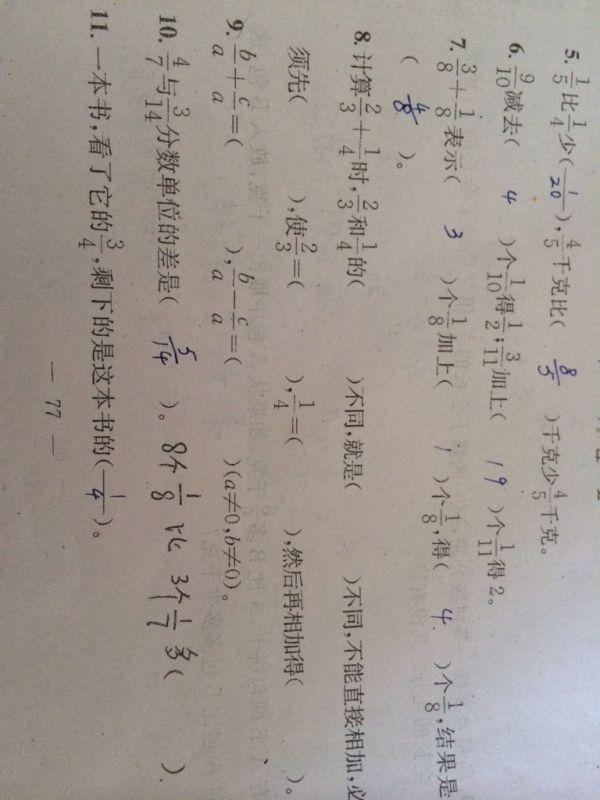 5. 1/5比1/4少(1/20),4/5千克比(8/5)千克少4/5千克。
6. 9/10减去(4)个1/10得1/2;3/11加上(19)个1/11得2。
7. 3/8+1/8表示(3)个1/8加上(1)个1/8,得(4)个1/8,结果是
(4/8)。
8. 计算2/3+1/4时,2/3和1/4的( )不同,就是( )不同,不能直接相加,必
须先( ),使2/3=( ),1/4=( ),然后再相加得( )。
9. b/a+c/a=( ),b/a-c/a=( )(a≠0,b≠0)。
10. 4/7与3/14分数单位的差是(5/14)。8个1/8比3个1/7多( ).
11. 一本书,看了它的3/4,剩下的是这本书的(1/4)。
— 77 —